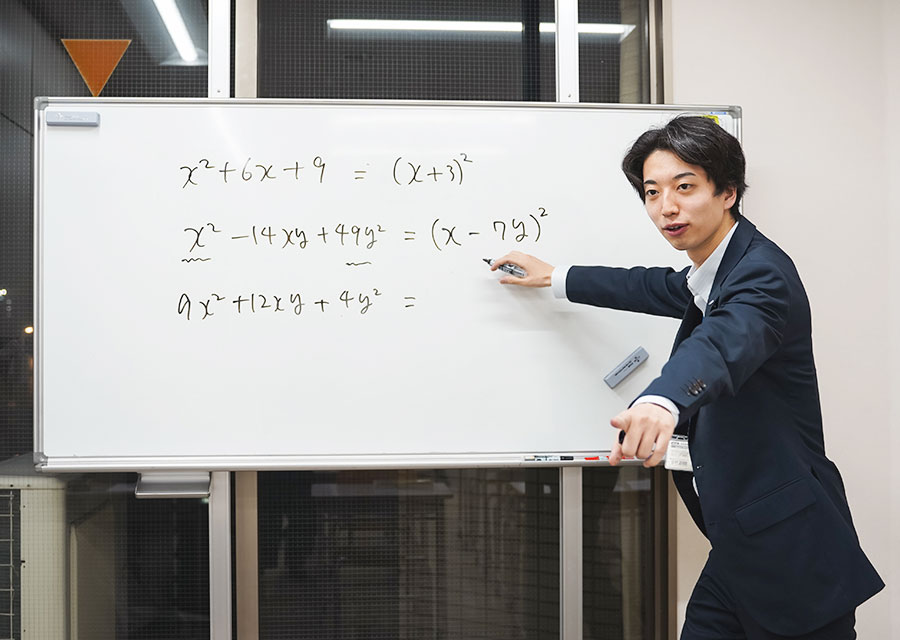 x² + 6x + 9 = (x+3)²
x² - 14xy + 49y² = (x - 7y)²
9x² + 12xy + 4y² =